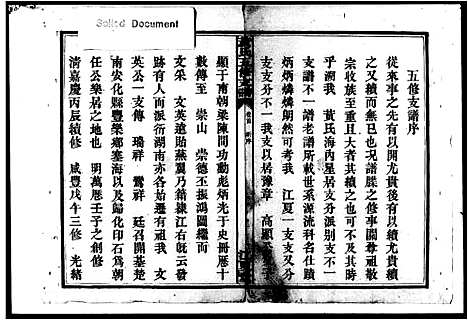 Soiled Document
五修支譜序
從來事之先有以開尤貴後有以續尤貴續
之又續而無已也况譜牒之修事關尊祖敬
宗收族至重且大者其續之也可不
乎溯我 黃氏海內星居支分派别支不一
支譜不一譜老譜所載世系源流科名仕蹟
炳炳燐燐朗然可考我 江夏一支支又分
支支分不一我支以居豫章 高顯
顯于南朝梁陳間功勳彪炳光于史冊歷十
數傳至 崇山 崇德丕振鴻圖繼而
文采 文英遠貽燕翼乃籍隸江右旣云發
跡有人而派衍湖南亦各始遷有祖我 文
英公一支傳 瑞祥 鸞祥 廷召開基楚
南安化縣豐樂鄉塞海以及歸化印石爲朝
任公樂居之地也 明萬歷壬子之創修
清嘉慶丙辰續修 咸豐戊午三修 光緒